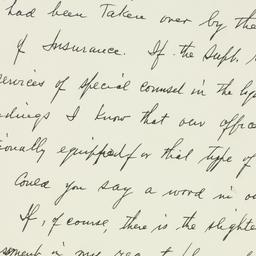 had been taken over by the
of Insurance. If the Supt.
services of special counsel in the
I know that our office
equipped for this type of
Could you say a word in
If, of course, there is the
in my